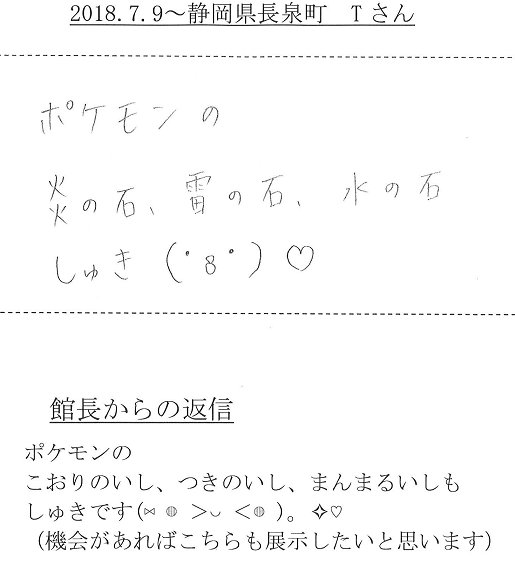 2018.7.9～静岡県長泉町　Tさん
ポケモンの
炎の石、雷の石、水の石
しゅき (°8°) ♡
館長からの返信
ポケモンの
こおりのいし、つきのいし、まんまるいしも
しゅきです(⋈ ◍ ＞◡ ＜◍ )。✧♡
（機会があればこちらも展示したいと思います）